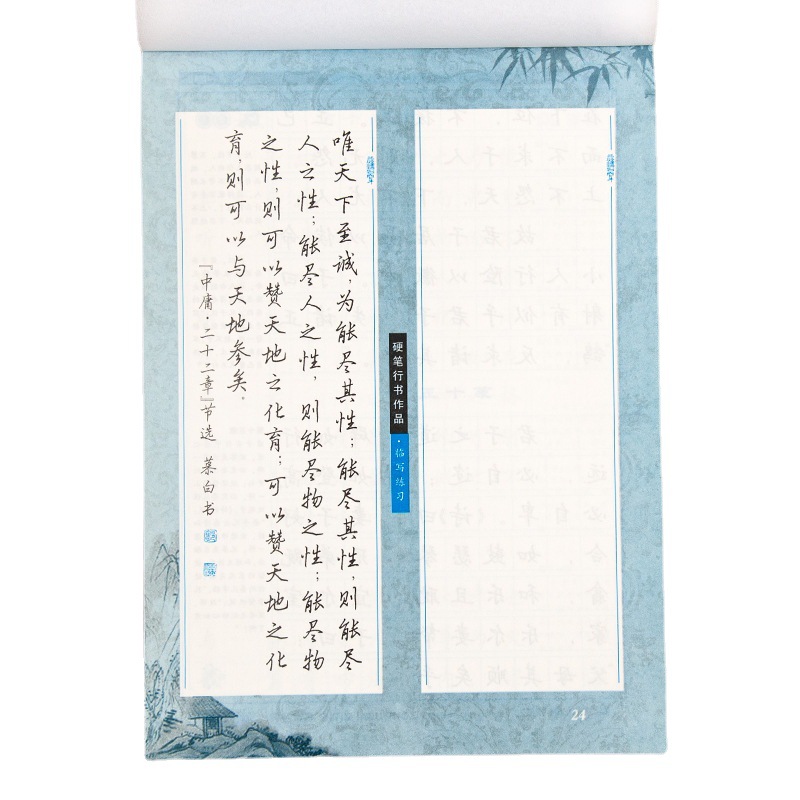 唯天下至诚，为能尽其性；能尽其性，则能尽
人之性；能尽人之性，则能尽物之性；能尽物
之性，则可以赞天地之化育；可以赞天地之化
育，则可以与天地参矣。
『中庸·二十二章』节选 某白书
硬笔行书作品
·临写练习
24